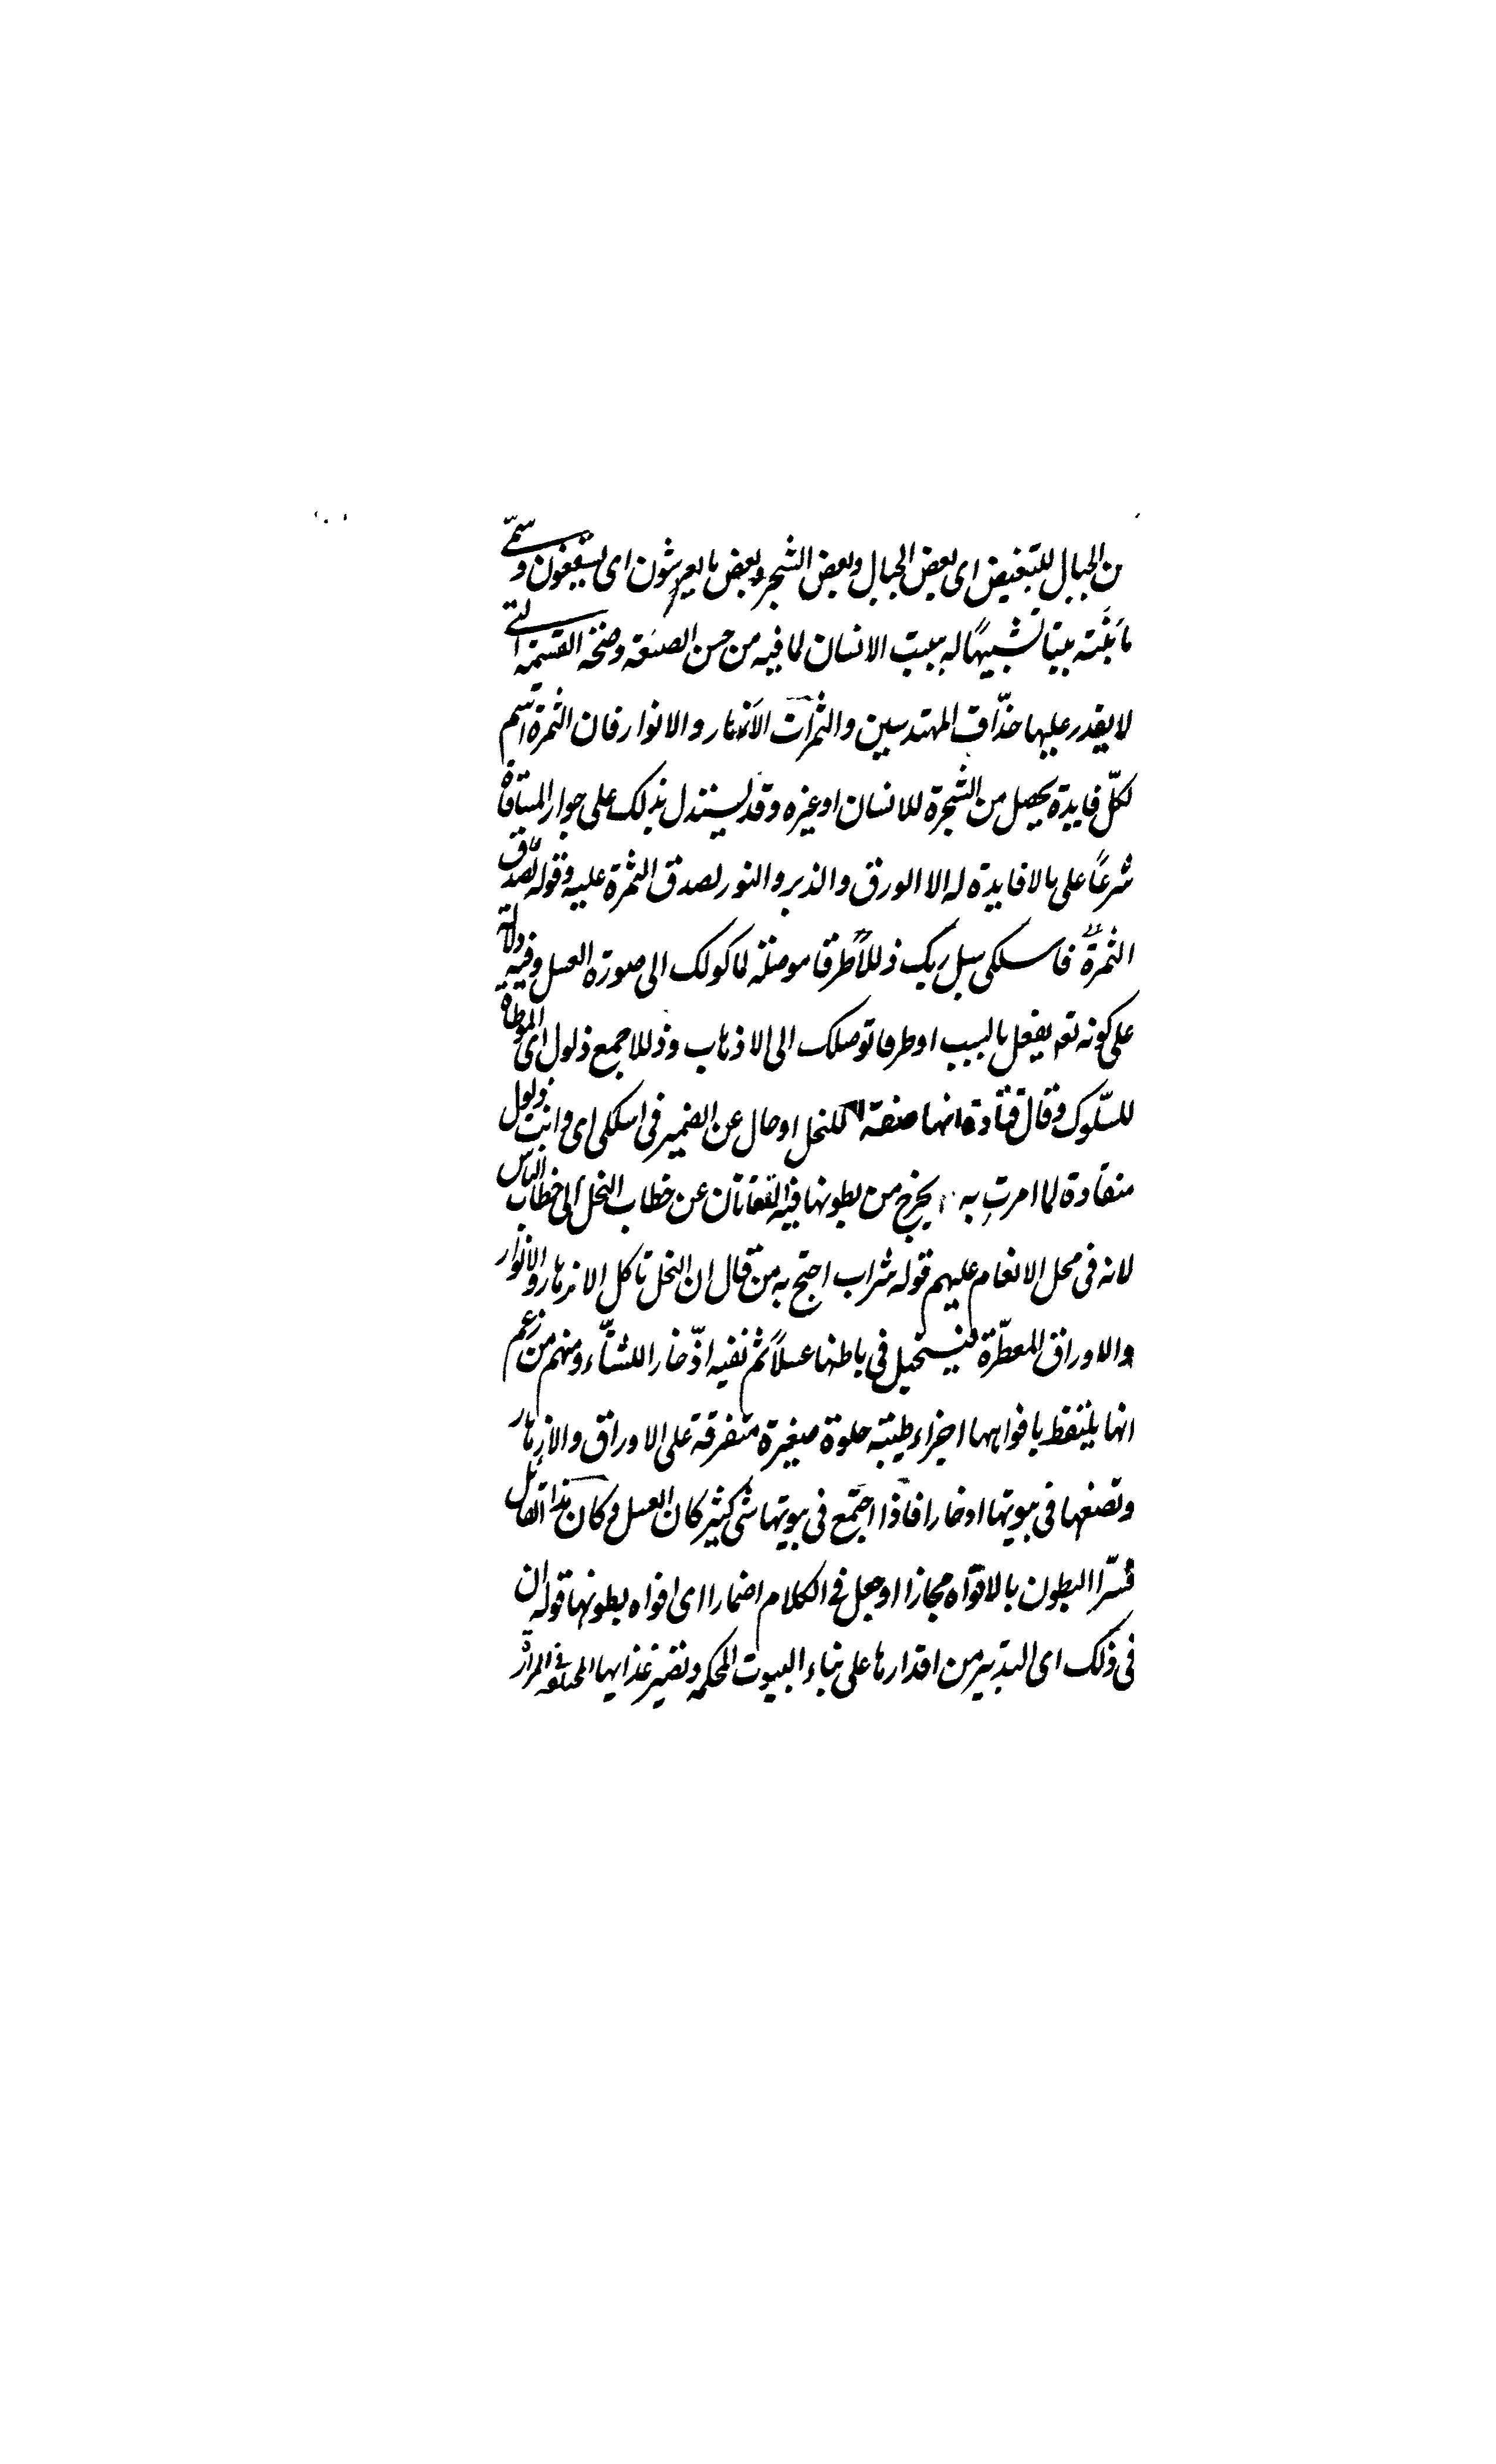 من الجبال للتبعيض اى بعض الجبال وبعض الشجر وبعض ما يعرشون اى يسقفون وسمّى
ما بنته بيتا تشبيهًا له ببيت الانسان لما فيه من حسن الصنعة وصحّة القسمة التى
لا يقدر عليها حذّاق المهندسين والثمرات الازهار والانوار فان الثمرة اسم
لكلّ فايدة يحصل من الشجرة للانسان او غيره وقد يستدل بذلك على جواز المساقاة
شرعًا على ما لا فايدة له الا الورق والذبر والنور لصدق الثمرة عليه وقوله لصدق
الثمرة فاسلكى سبل ربك ذللاً طرقا موصلة لماكولك الى صورة العسل وفيه دلالة
على كونه تع يفعل بالسبب او طرقا توصلك الى الاذهاب وذللا جمع ذلول اى الموطاة
للسّلوك وقال قتادة انها صفة للنحل او حال عن الضمير فى اسلكى اى وانت ذلول
منقادة لما امرتِ به يخرج من بطونها فيه التفاتان عن خطاب النحل الى خطاب الناس
لانه فى محل الانعام عليهم قوله شراب احتج به من قال ان النحل تاكل الازهار والانوار
والاوراق المعطّرة فيستحيل فى باطنها عسلاً ثم نفيه ادّخارا للشتاء ومنهم من زعم
انها يلتقط بافواهها اجزاء طيبة حلوة صغيرة متفرقة على الاوراق والازهار
وتضعها فى بيوتها ادخارا فاذا اجتمع فى بيوتها شى كثير كان العسل وكان هذا القائل
فسّر البطون بالافواه مجازا او جعل فى الكلام اضمارا اى افواه بطونها قوله ان
فى ذلك اى التدبير من اقدارها على بناء البيوت المحكمه وتصيير غذايها المختلفة فى المرارة